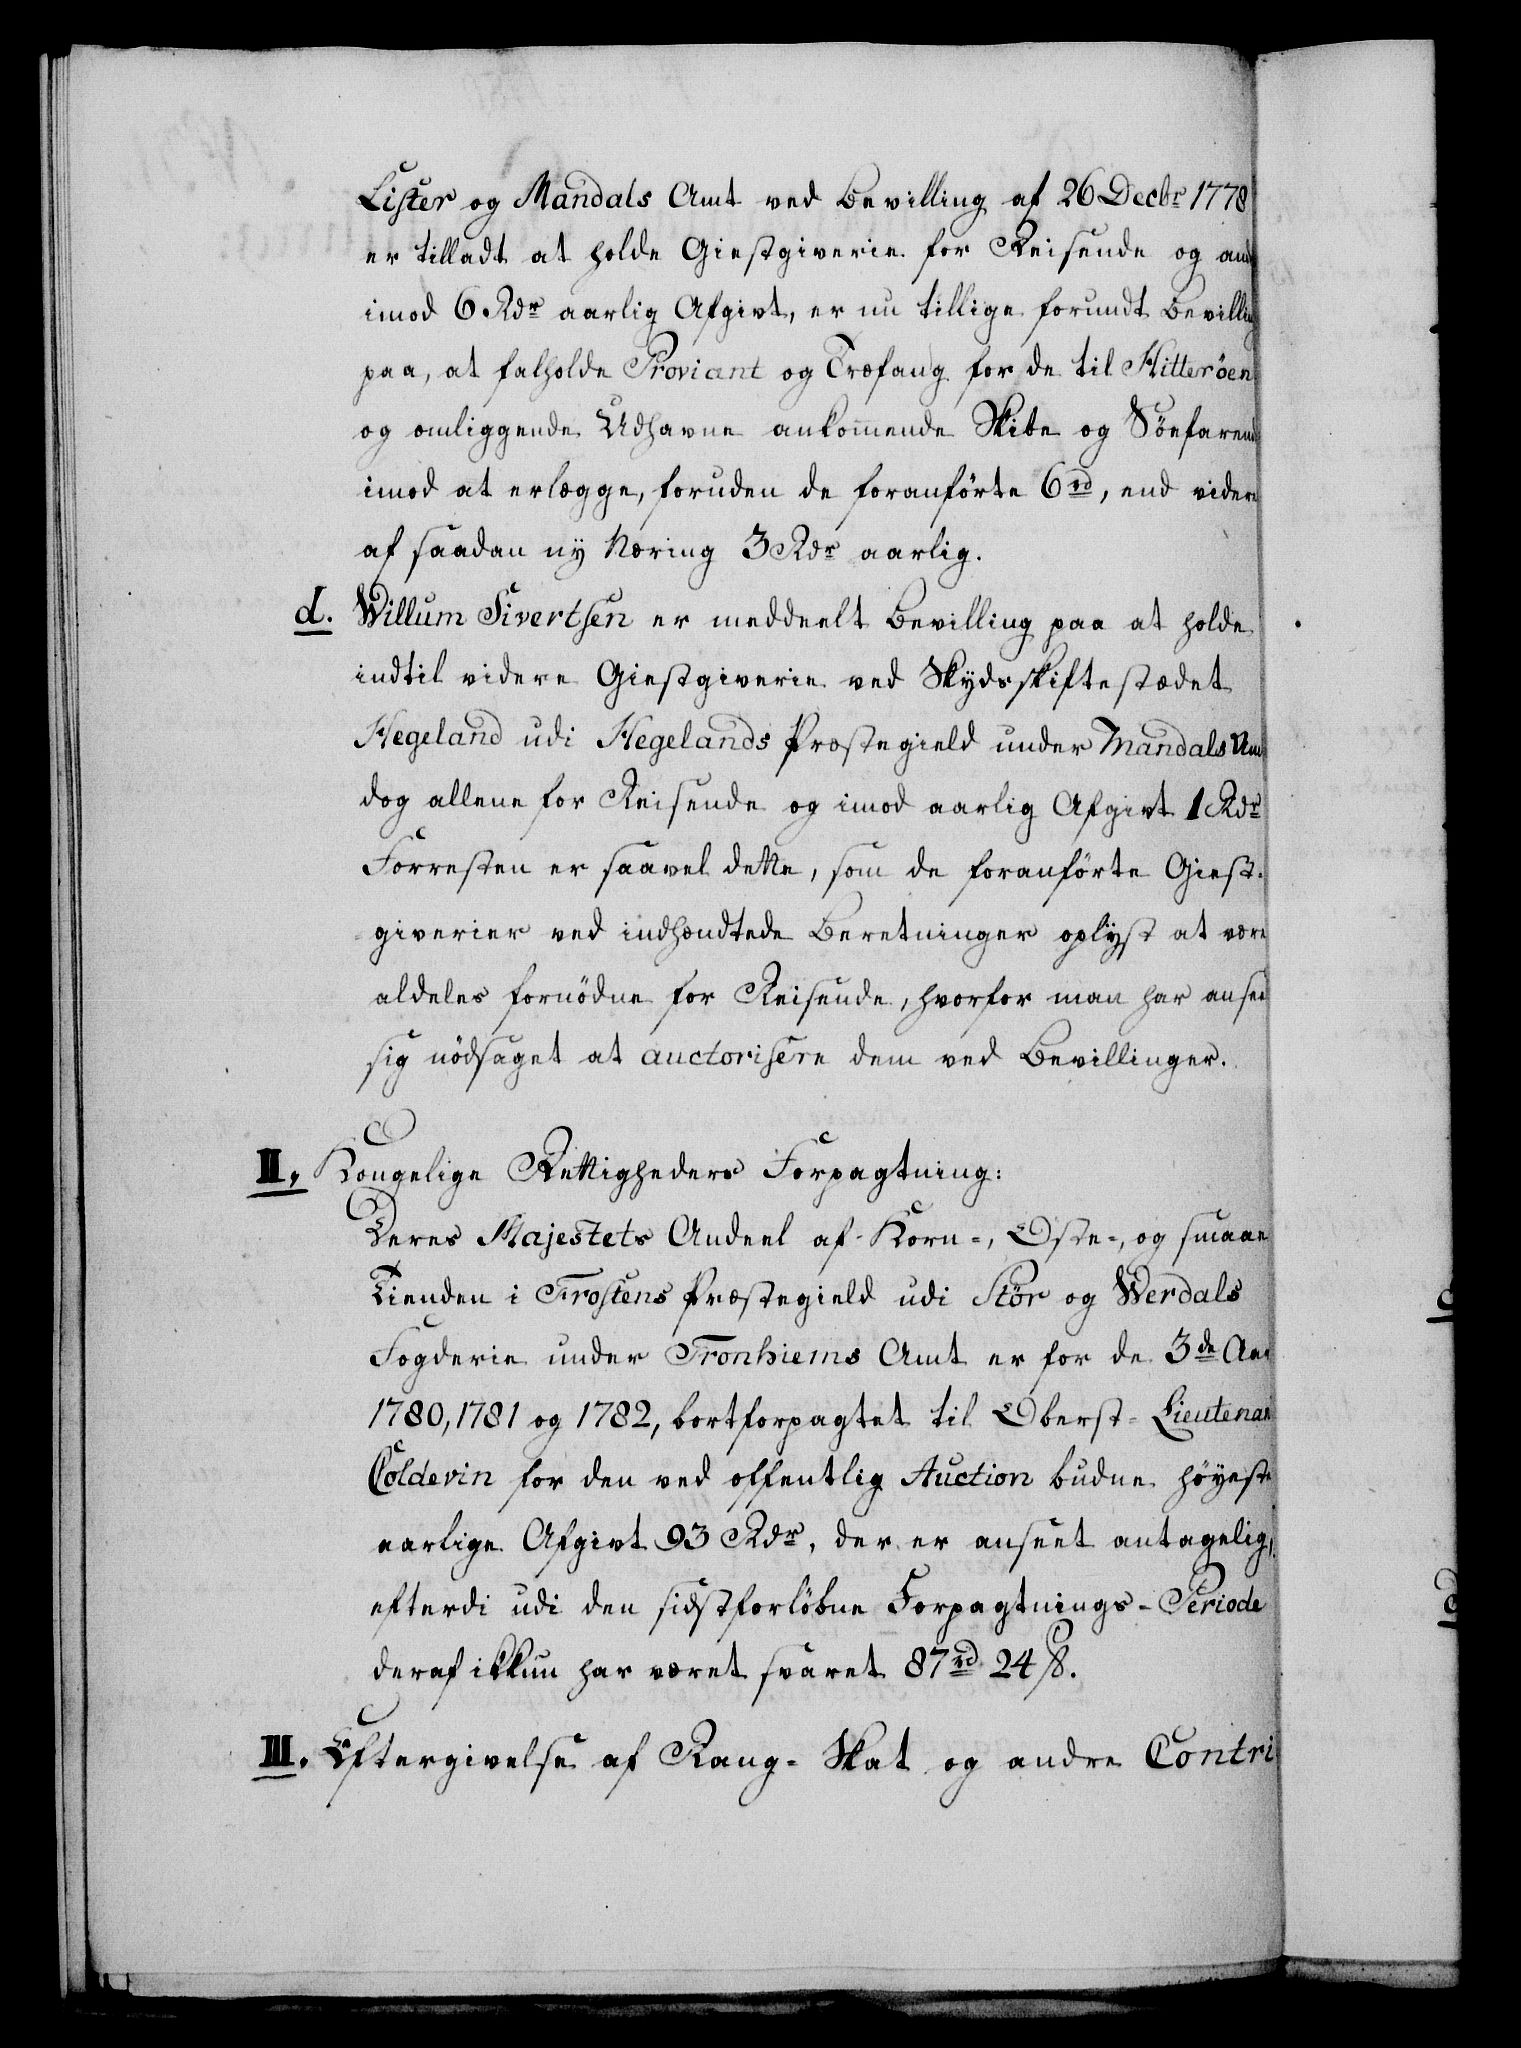 Lister og Mandals Amt ved Bevilling af 26 Decbr 1778
er tilladt at holde Giestgiverie for Reisende og and
imod 6 Rdr aarlig Afgivt, er nu tillige forundt Bevilling
paa, at falholde Proviant og Træfang for de til Hitteröen
og omliggende Udhavne ankommende Skibe og Söefarend
imod at erlægge, foruden de foranförte 6 rd, end videre
af saadan ny Næring 3 Rdr aarlig.
d. Willum Sivertsen er meddeelt Bevilling paa at holde
indtil videre Giestgiverie ved Skydsskiftestædet
Hegeland udi Hegelands Præstegield under Mandals Am
dog allene for Reisende og imod aarlig Afgivt 1 Rdr
Forresten er saavel dette, som de foranförte Giest-
giverier ved indhændtede Beretninger oplyst at være
aldeles fornödne for Reisende, hvorfor man har anseet
sig nödsaget at auctorisere dem ved Bevillinger.
II. Kongelige Rettigheders Forpagtning:
Deres Majestets Andeel af Korn-, Oste-, og smaae
Tienden i Frostens Præstegield udi Stör og Werdals
Fogderie under Tronhiems Amt er for de 3de Aar
1780, 1781 og 1782, bortforpagtet til Oberst-Lieutenan
Coldevin for den ved offentlig Auction budne höyeste
aarlige Afgivt 93 Rdr, der er anseet antagelig,
efterdi udi den sidstforløbne Forpagtnings-Periode
deraf ikkun har været svaret 87 rd 24 ß.
III. Eftergivelse af Rang-Skat og andre Contri